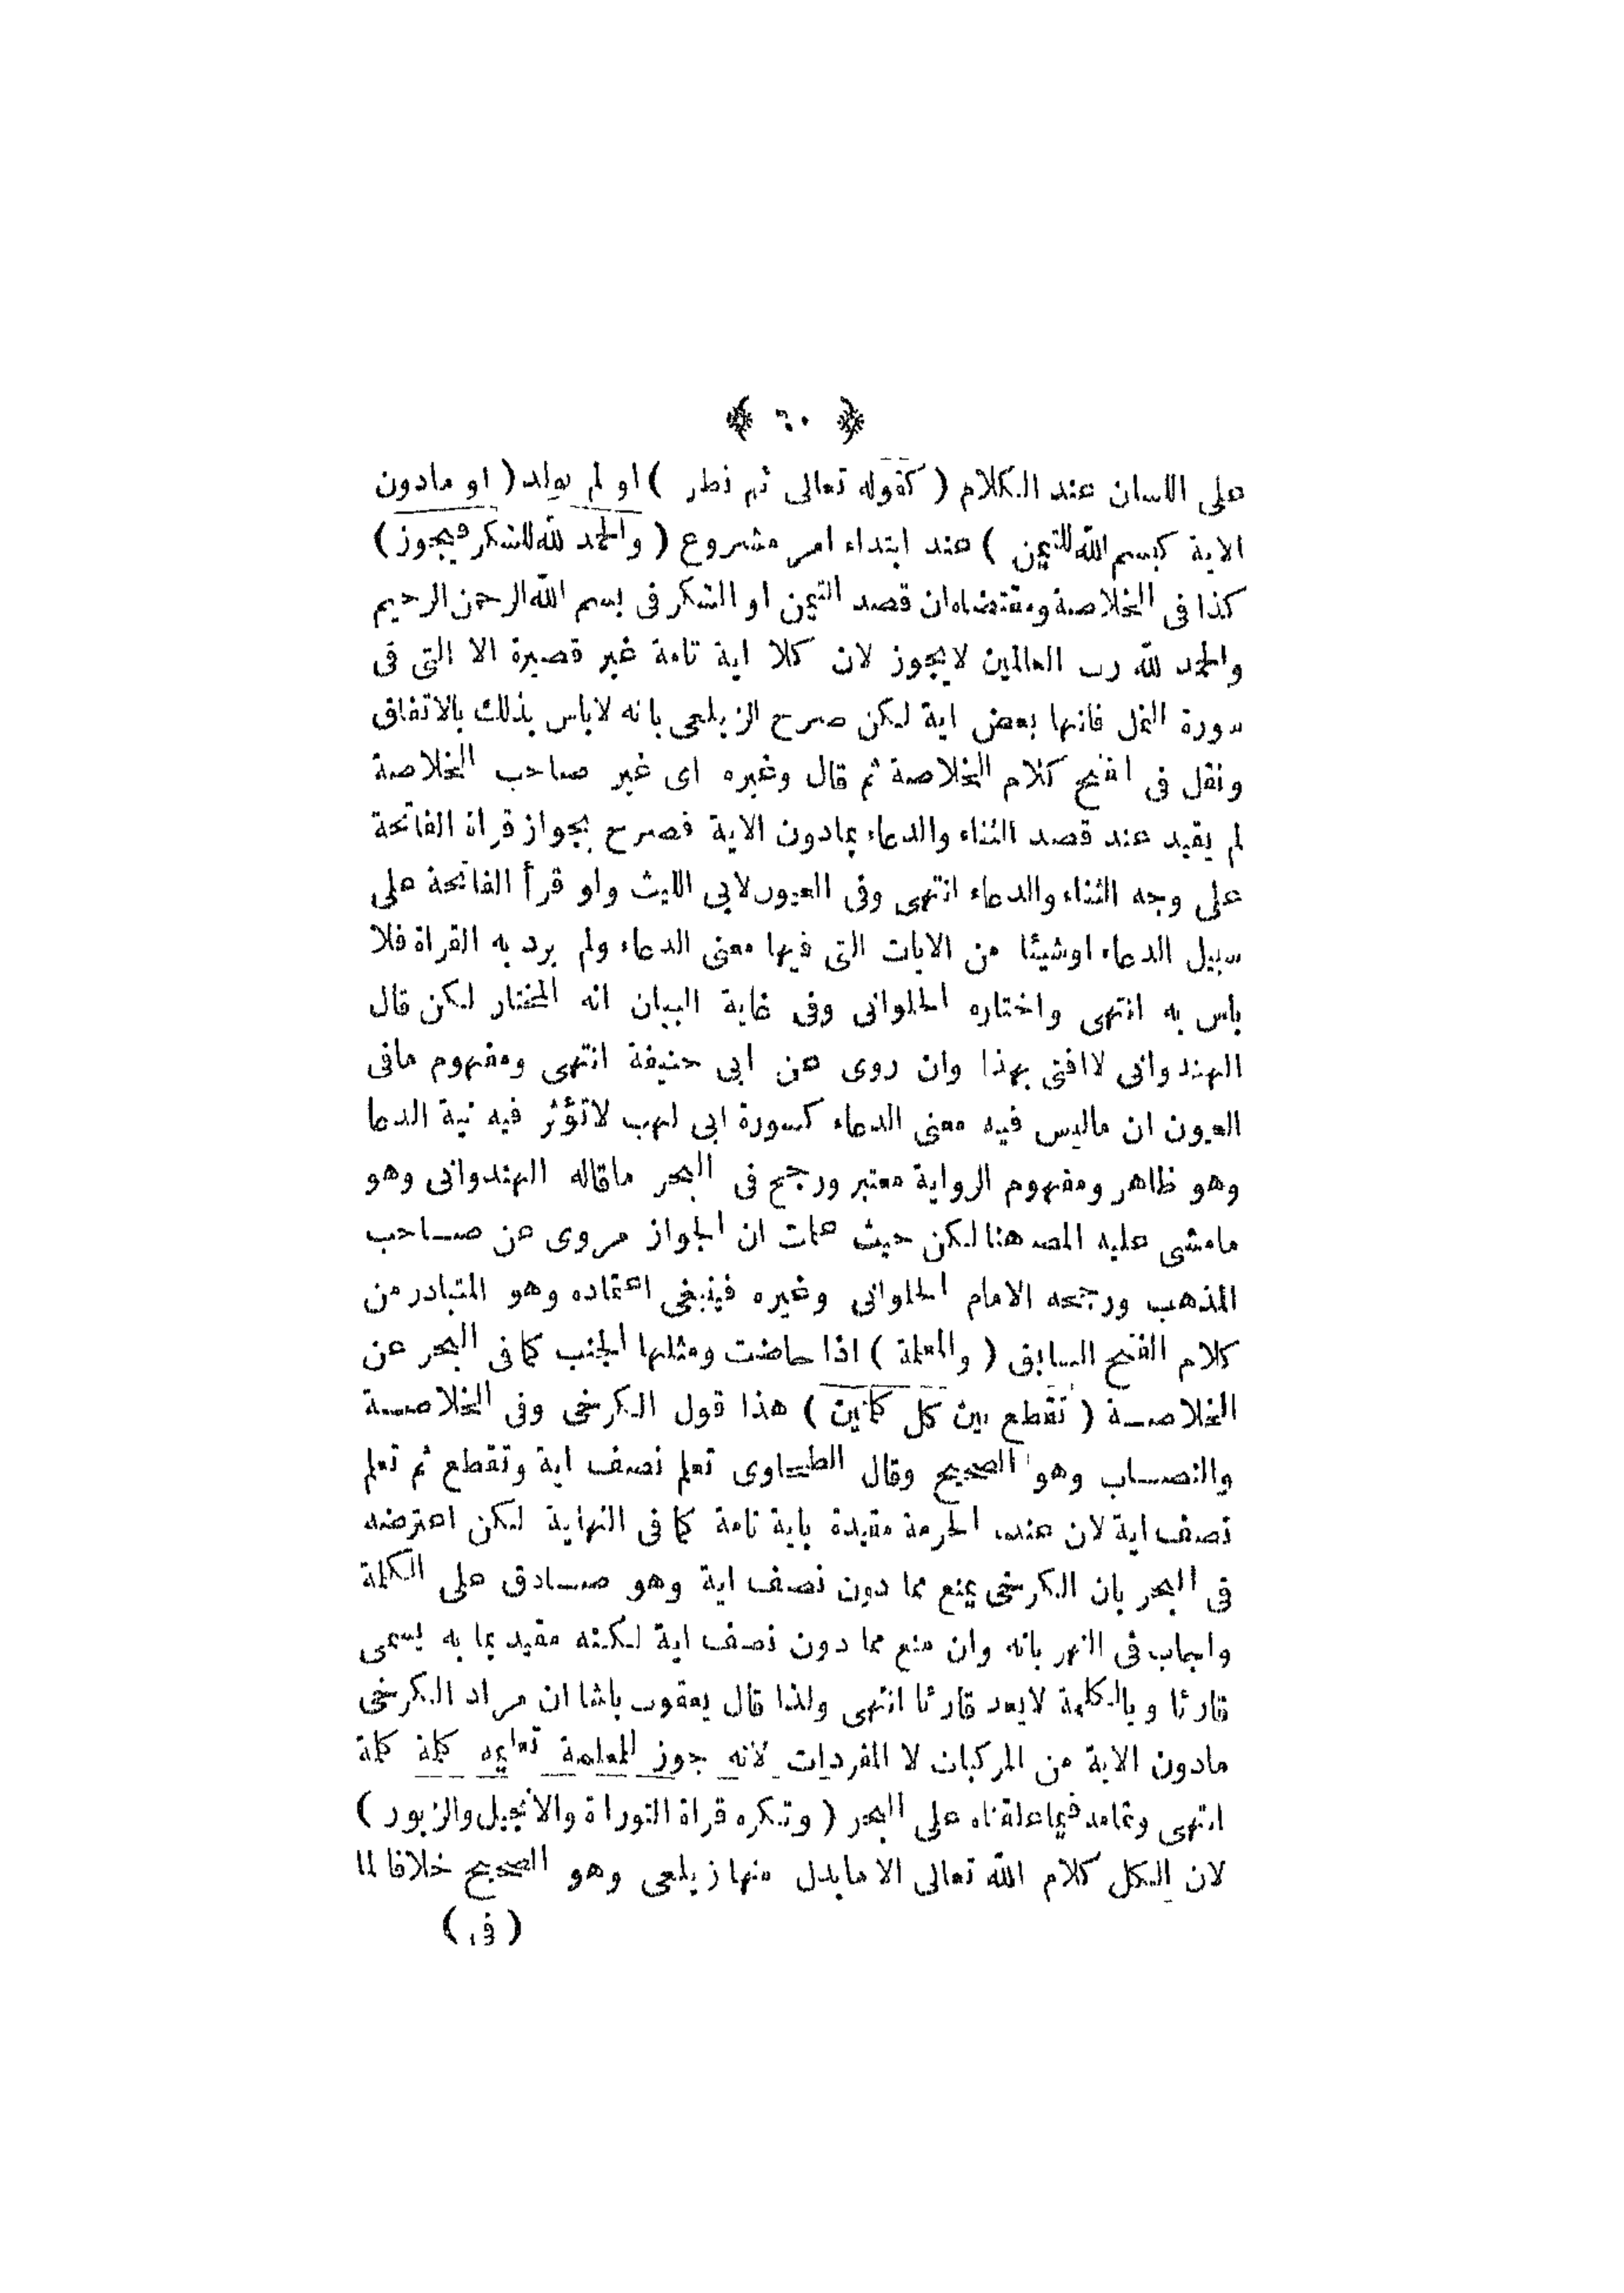 ﴿ ٦٠ ﴾
على اللسان عند الكلام ( كقوله تعالى ثم نظر ) او لم يولد ( او مادون
الاية كبسم الله للتيمن ) عند ابتداء امر مشروع ( والحمد لله للشكر فيجوز )
كذا فى الخلاصة ومقتضاه ان قصد التيمن او الشكر فى بسم الله الرحمن الرحيم
والحمد لله رب العالمين لايجوز لان كلا اية تامة غير قصيرة الا التى فى
سورة النمل فانها بعض اية لكن صرح الزيلعى بانه لاباس بذلك بالاتفاق
ونقل فى الفتح كلام الخلاصة ثم قال وغيره اى غير صاحب الخلاصة
لم يقيد عند قصد الثناء والدعاء بمادون الاية فصرح بجواز قراة الفاتحة
على وجه الثناء والدعاء انتهى وفى العيون لابى الليث ولو قرأ الفاتحة على
سبيل الدعاء اوشيئا من الايات التى فيها معنى الدعاء ولم يرد به القراة فلا
باس به انتهى واختاره الحلوانى وفى غاية البيان انه المختار لكن قال
الهندوانى لاافتى بهذا وان روى عن ابى حنيفة انتهى ومفهوم مافى
العيون ان ماليس فيه معنى الدعاء كسورة ابى لهب لاتؤثر فيه نية الدعا
وهو ظاهر ومفهوم الرواية معتبر ورجح فى البحر ماقاله الهندوانى وهو
مامشى عليه المصـ هنا لكن حيث علمت ان الجواز مروى عن صاحب
المذهب ورجحه الامام الحلوانى وغيره فينبغى اعتماده وهو المتبادر من
كلام الفتح السابق ( والمعلمة ) اذا حاضت ومثلها الجنب كما فى البحر عن
الخلاصة ( تقطع بين كل كلمتين ) هذا قول الكرخى وفى الخلاصة
والنصاب وهو الصحيح وقال الطحاوى تعلم نصف اية وتقطع ثم تعلم
نصف اية لان عنده الحرمة مقيدة باية تامة كما فى النهاية لكن اعترضه
فى البحر بان الكرخى يمنع مما دون نصف اية وهو صادق على الكلمة
واجاب فى النهر بانه وان منع مما دون نصف اية لكنه مقيد بما به يسمى
قارئا وبالكلمة لايعد قارئا انتهى ولذا قال يعقوب باشا ان مراد الكرخى
مادون الاية من المركبات لا المفردات لانه جوز للمعلمة تعليمه كلمة كلمة
انتهى وتمامه فيما علقناه على البحر ( وتكره قراة التوراة والانجيل والزبور )
لان الكل كلام الله تعالى الا مابدل منها زيلعى وهو الصحيح خلافا لما
( فى )